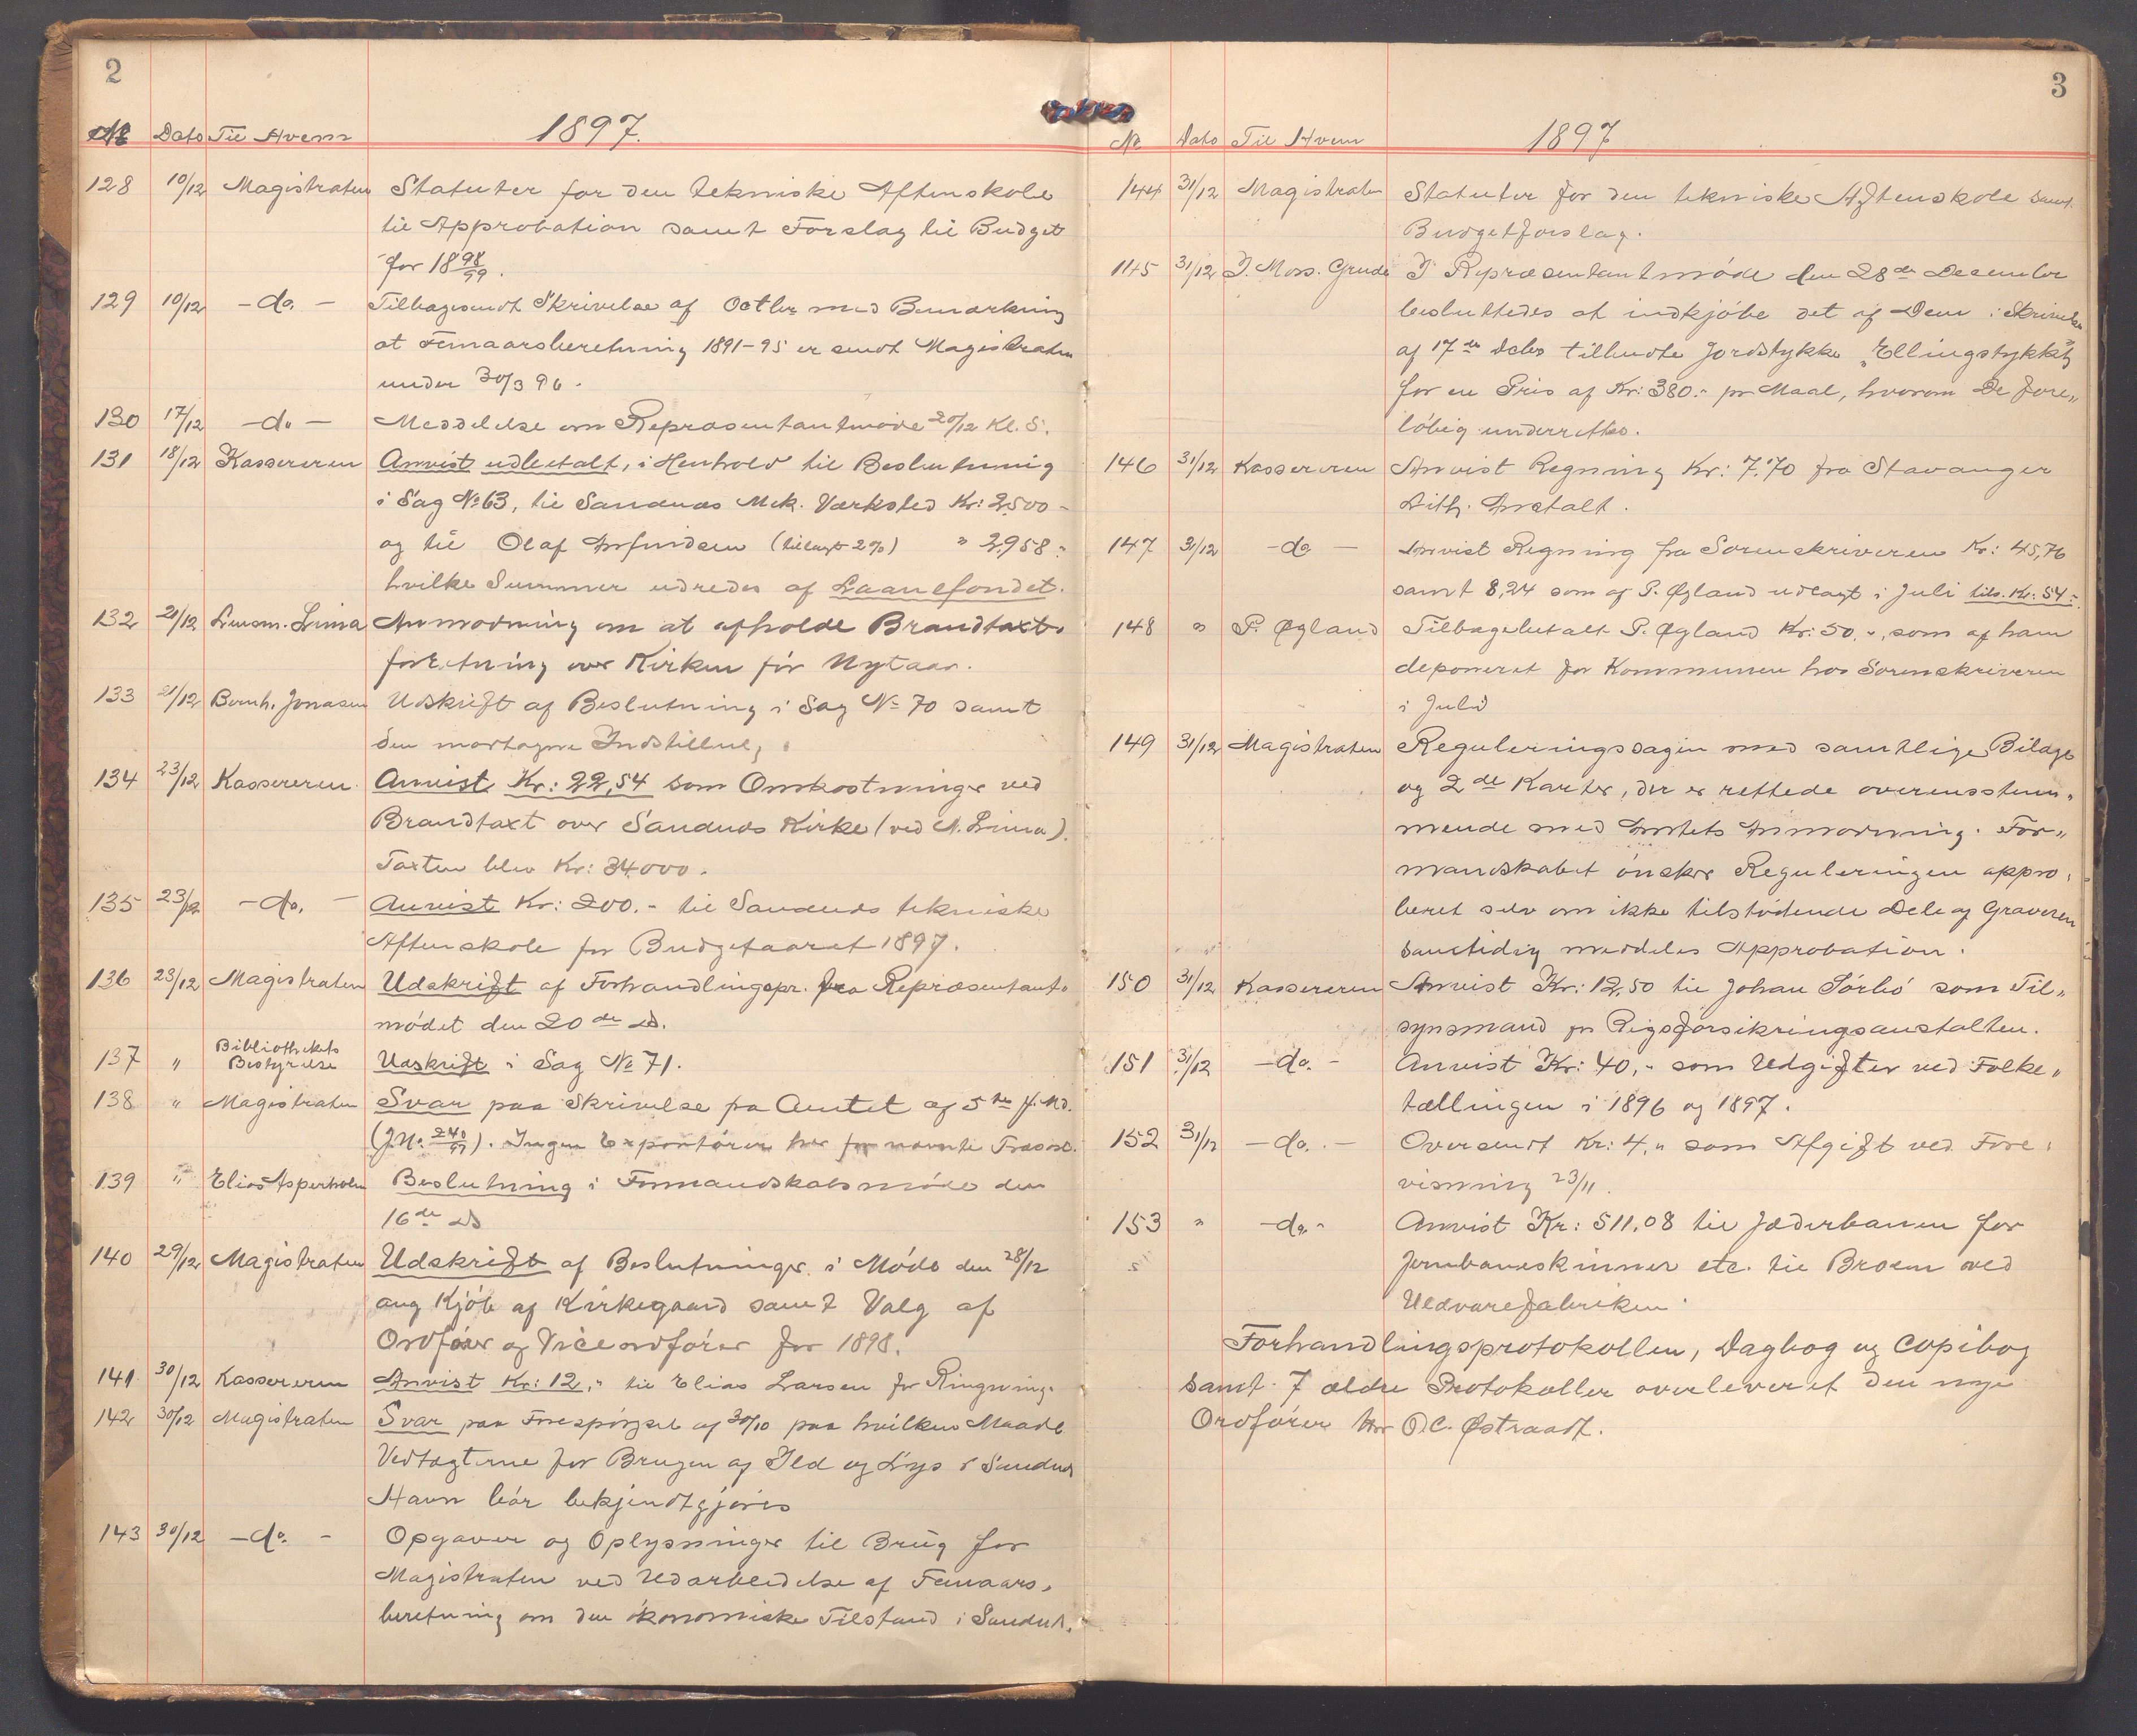 2
No Dato Til Hvem 1897.
128 10/12 Magistraten Statuter for den tekniske Aftenskole
til Approbation samt Forslag til Budget
for 18 98/99.
129 10/12 - do. - Tilbagesendt Skrivelse af Octbr med Bemærkning
at Femaarsberetning 1891-95 er sendt Magistraten
under 30/3 96.
130 17/12 - do - Meddelelse om Repræsentantmøde 20/12 Kl. 5.
131 18/12 Kassereren Anvist udbetalt, i Henhold til Beslutning
i Sag No 63, til Sandnes Mek. Værksted Kr: 2500 -
og til Olaf (tillagt 2%) " 2958 "
hvilke Summer udredes af Laanefondet.
132 21/12 Lensm. Lima Anmodning om at afholde Brandtaxt-
forretning over Kirken før Nytaar.
133 21/12 Bernh. Jonasen Udskrift af Beslutning i Sag No 70 samt
den Indstilling
134 23/12 Kassereren Anvist Kr: 22,54 som Omkostninger ved
Brandtaxt over Sandnes Kirke (ved M. Lima).
Taxten blev Kr: 34000.
135 23/12 - do. - Anvist Kr: 200.- til Sandnes tekniske
Aftenskole for Budgetaaret 1897.
136 23/12 Magistraten Udskrift af Forhandlingspr. fra Repræsentant-
mødet den 20de ds.
137 " Bibliothekets
Bestyrelse Udskrift i Sag No 71.
138 " Magistraten Svar paa Skrivelse fra Amtet af 5te f. Md.
(J.No. 240/97). Ingen Exportører her for nævnte
139 " Elias Asperholm Beslutning i Formandskabsmøde den
16de ds
140 29/12 Magistraten Udskrift af Beslutninger i Møde den 28/12
ang Kjøb af Kirkegaard samt Valg af
Ordfører og Viceordfører for 1898.
141 30/12 Kassereren Anvist Kr: 12,- til Elias Larsen for Ringning.
142 30/12 Magistraten Svar paa Forespørgsel af 30/10 paa hvilken Maade
Vedtægterne for Brugen af Ild og Lys i Sandnes
Havn bør bekjendtgjøres
143 30/12 - do. - Opgaver og Oplysninger til Brug for
Magistraten ved Udarbeidelse af Femaars-
beretning om den økonomiske Tilstand i Sandnes.
3
No Dato Til Hvem 1897
144 31/12 Magistraten Statuter for den tekniske Aftenskole samt
Budgetforslag.
145 31/12 J. Moss. Grude I Repræsentantmøde den 28de December
besluttedes at indkjøbe det af Dem i Skrivelse
af 17de Debr tilbudte Jordstykke "Ellingstykket"
for en Pris af Kr: 380.- pr Maal, hvorom De fore-
løbig underrettes.
146 31/12 Kassereren Anvist Regning Kr: 7.70 fra Stavanger
Lith. Anstalt.
147 31/12 - do - Anvist Regning fra Sorenskriveren Kr: 45,76
samt 8,24 som af P. Øgland udlagt i Juli tils. Kr: 54 -
148 " P. Øgland Tilbagebetalt P. Øgland Kr: 50.-, som af ham
deponeret for Kommunen hos Sorenskriveren
i Juli
149 31/12 Magistraten Reguleringssagen med samtlige Bilage
og 2de Karter, der er rettede overensstem-
mende med Amtets Anmodning. For-
mandskabet ønsker Reguleringen appro-
beret selv om ikke tilstødende Dele af Graveren
samtidig meddeles Approbation.
150 31/12 Kassereren Anvist Kr: 12,50 til Johan Sørbø som Til-
synsmand for Rigsforsikringsanstalten.
151 31/12 - do. - Anvist Kr: 40,- som Udgifter ved Folke-
tællingen i 1896 og 1897.
152 31/12 - do. - Oversendt Kr: 4,- som Afgift ved Fore-
visning 23/11.
153 " - do. - Anvist Kr: 511,08 til Jæderbanen for
Jernbaneskinner etc. til Broen ved
Uldvarefabriken
Forhandlingsprotokollen, Dagbog og Copibog
samt 7 ældre Protokoller overleveret den nye
Ordfører Hr O.C. Østraadt.